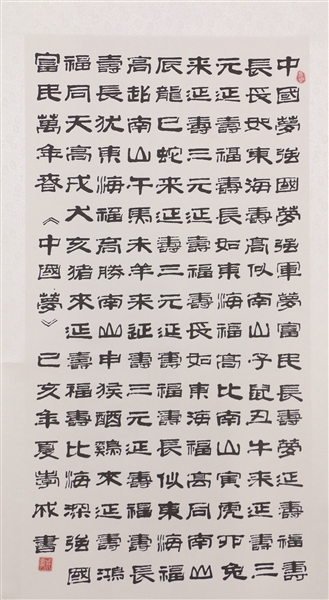 中國夢強國夢強軍夢富民長壽夢延壽福壽
長長如東海壽高似南山子鼠丑牛来延壽三
元延壽福壽長如東海福高比南山寅虎卯兔
来延壽三元延壽福壽長如東海福高同南山
辰龍巳蛇来延壽三元延壽福壽長似東海福
高超南山午馬未羊来延壽三元延壽福壽長
壽長犹東海福高勝南山申猴酉鷄来延壽鴻
福同天高戌犬亥猪来延壽福壽比海深強國
富民萬年春《中國夢》己亥年夏成書